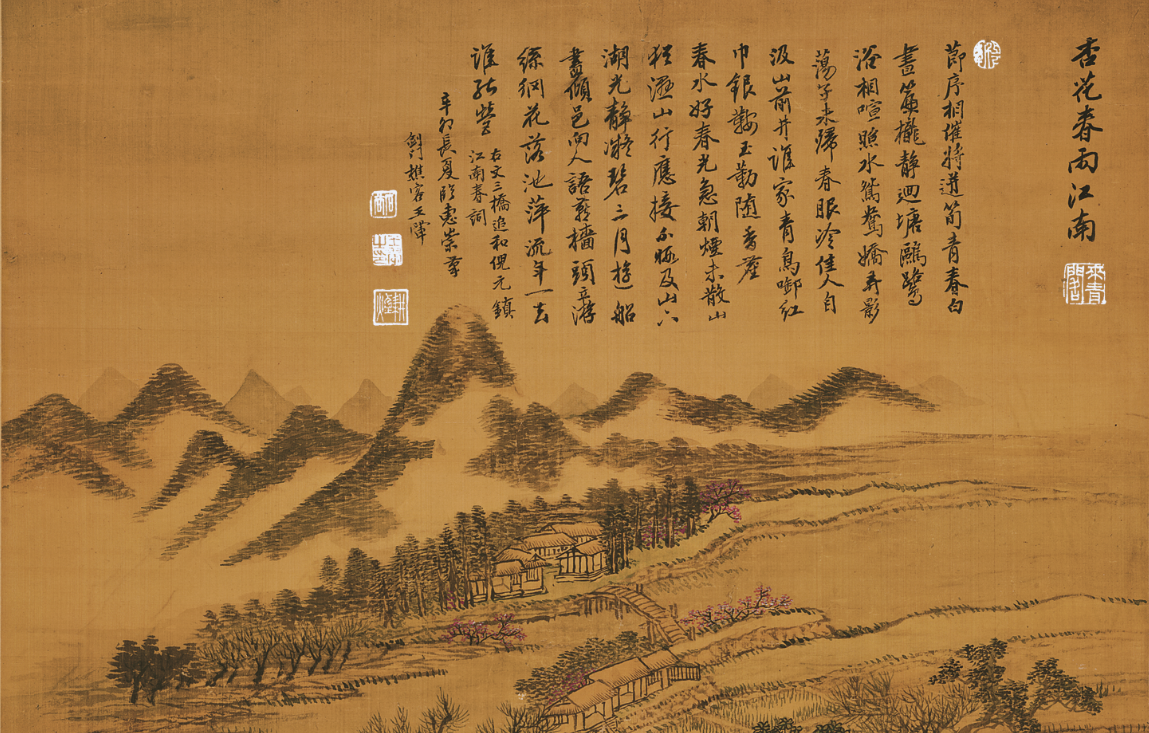 杏花春雨江南
來青閣
節序相催特迸筍青春白
晝簾櫳靜迴塘鷗鷺
浴相喧照水鴛鴦嬌弄影
蕩子未歸春眼冷佳人自
汲山前井誰家青鳥啣紅
巾銀鞍玉勒隨香塵
春水好春光急朝煙未散山
猶濕山行應接不暇及山六
湖光靜凝碧三月遊船
畫傾邑向人語燕檣頭立游
絲網花落池萍流年一去
誰能營
右文三橋追和倪元鎮
江南春詞
辛卯長夏臨惠崇筆
劍門樵客王翬
耕煙